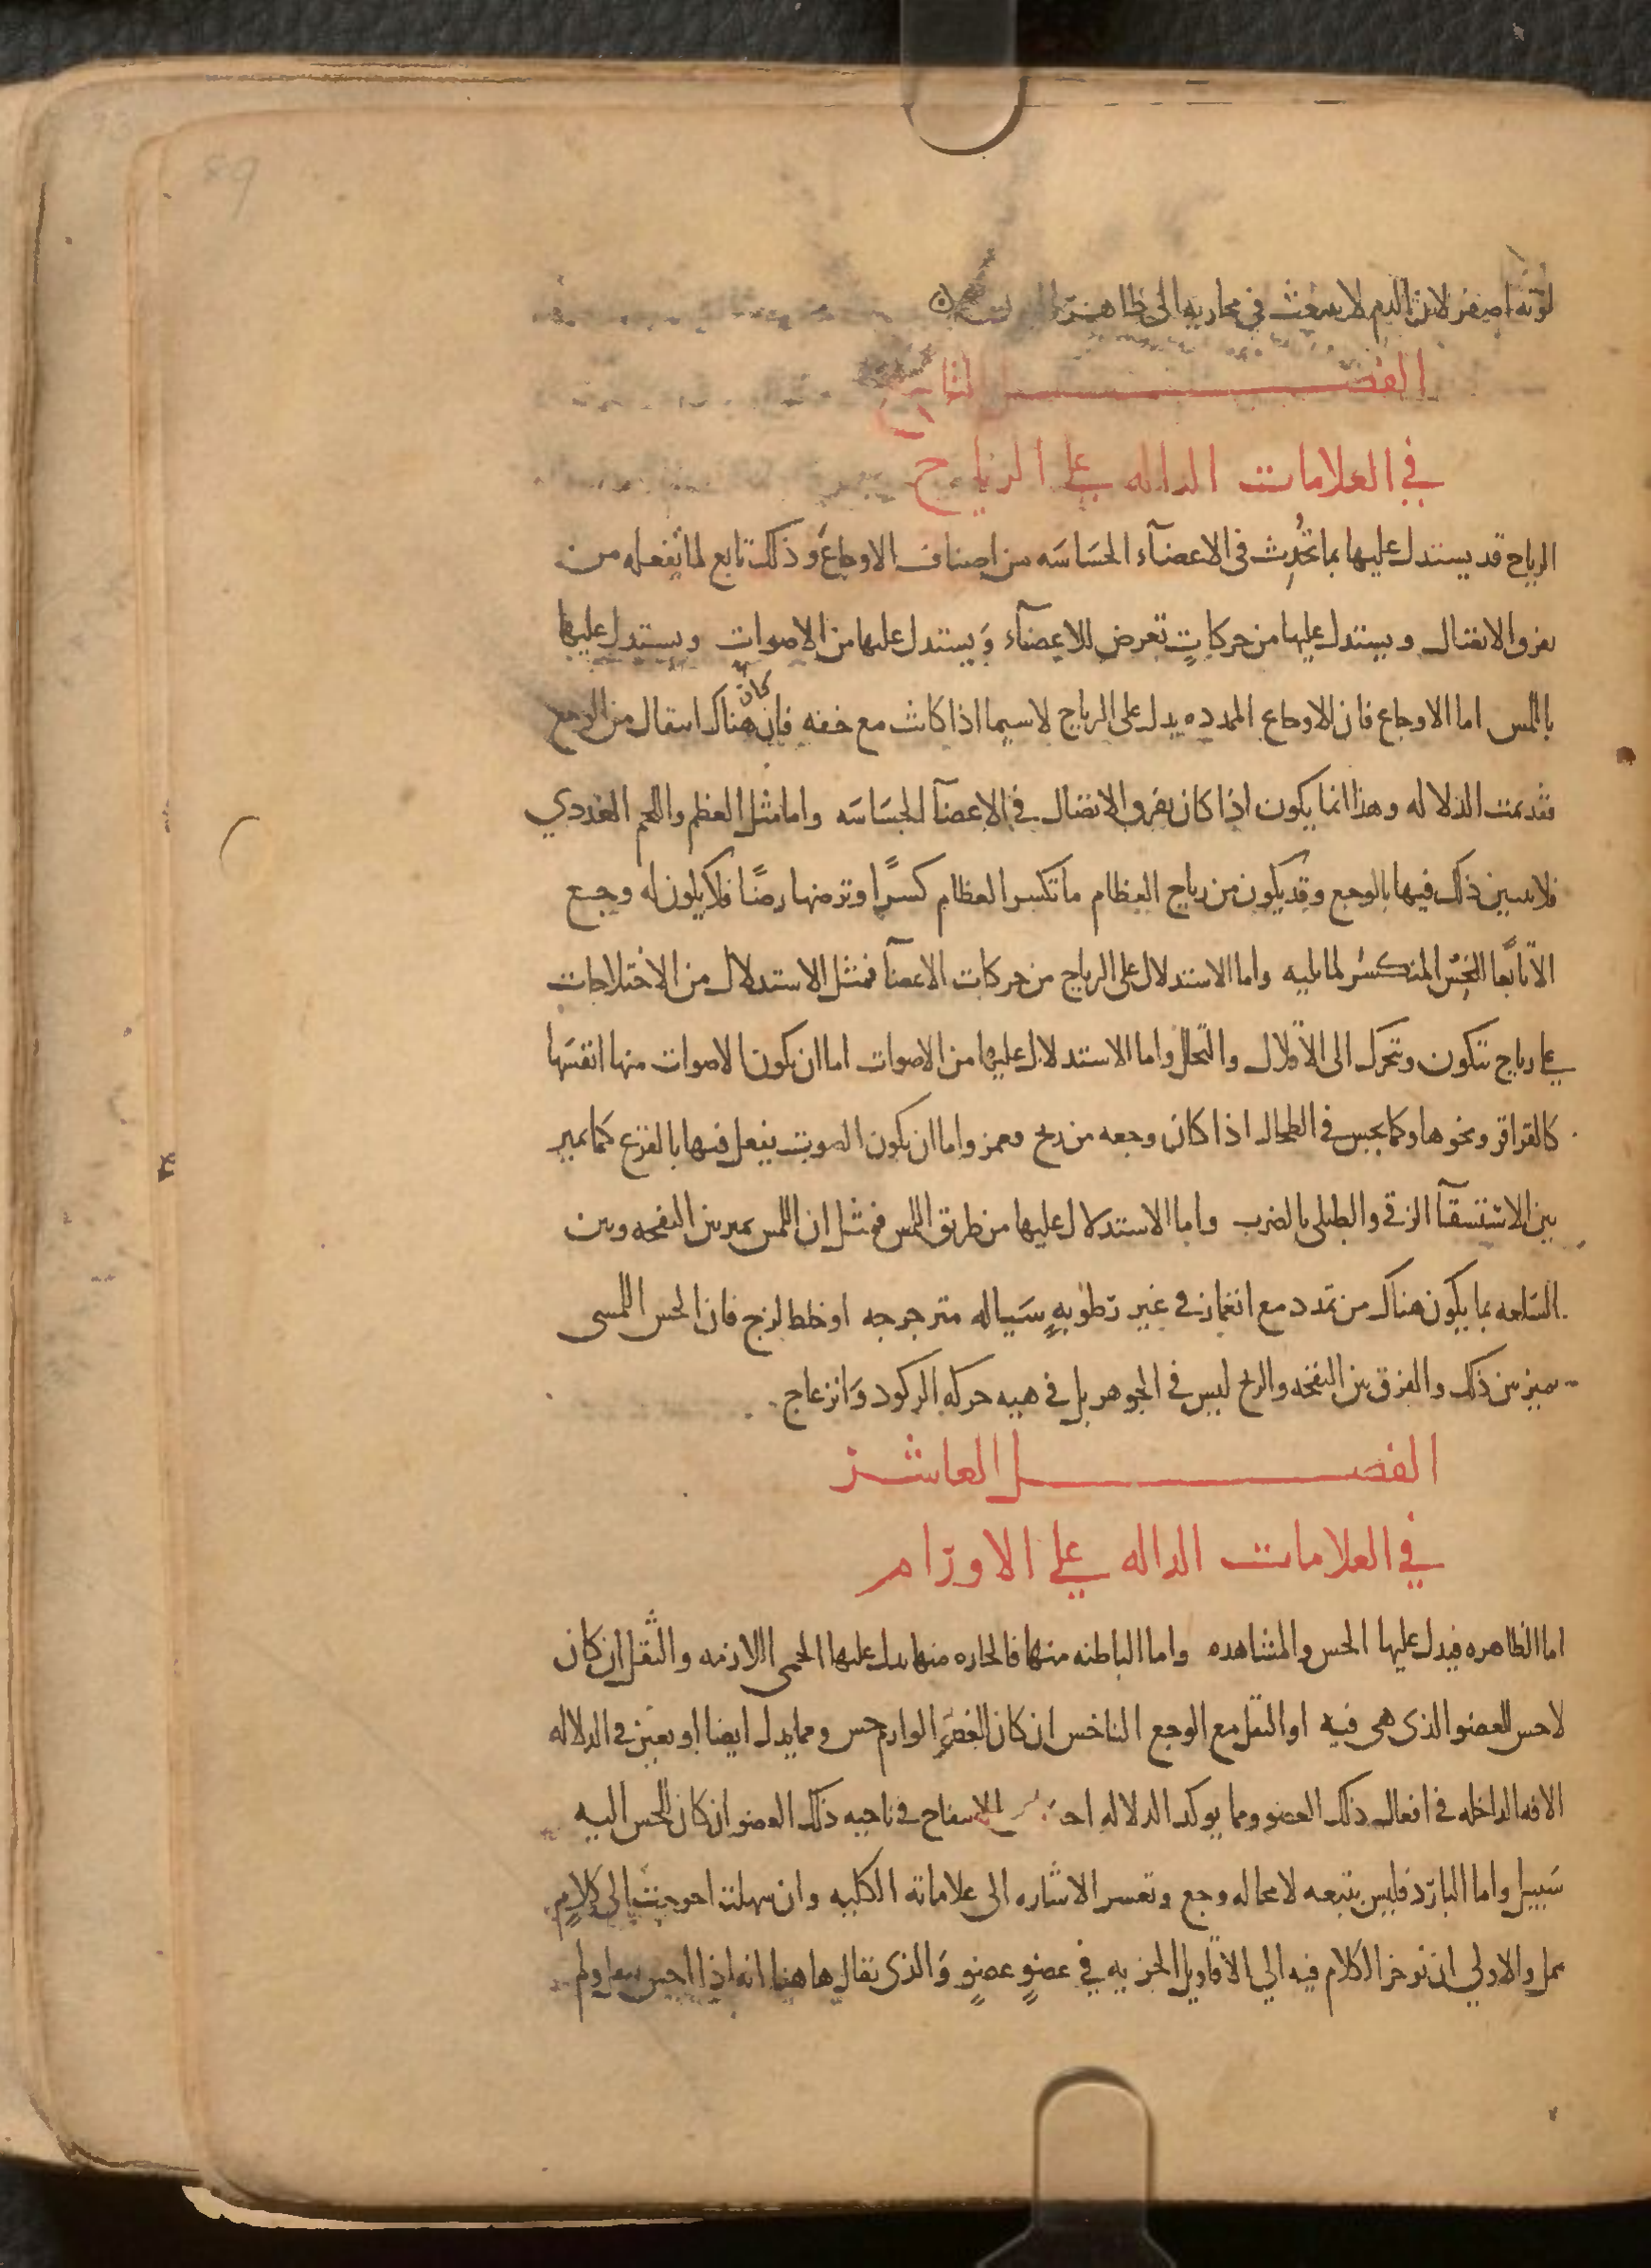 89
لونه اصفر لان الدم لا ينبعث في مجاريه الى ظاهر
الفصل التاسع
في العلامات الداله علي الرياح
الرياح قد يستدل عليها بما تحدث في الاعضآء الحساسه من اصناف الاوجاع وذلك تابع لما يفعله من
تفرق الاتصال ويستدل عليها من حركاتٍ تعرض للاعضآء ويستدل عليها من الاصوات ويستدل عليها
باللمس اما الاوجاع فان الاوجاع الممدده يدل على الرياح لاسيما اذا كانت مع خفه فان كان هناك انتقال من الوجع
فقد تمت الدلاله وهذا انما يكون اذا كان تفرق الاتصال في الاعضآ الحساسه واما مثل العظم واللحم الغددي
فلا يتبين ذلك فيها بالوجع وقد يكون من رياح العظام ما تكسر العظام كسرًا وترضها رضًا فلا يكون له وجع
الا تابعا المنكسر لما يليه واما الاستدلال على الرياح من حركات الاعضآ فمثل الاستدلال من الاختلاجات
علي رياح تتكون وتتحرك الى الاقلال والتحلل واما الاستدلال عليها من الاصوات اما ان يكون الاصوات منها انفسها
كالقراقر ونحوها وكما يحس في الطحال اذا كان وجعه من ريح بغمز واما ان يكون الصوت يفعل فيها بالقرع كما يميز
بين الاستسقآ الزقي والطبلي بالضرب واما الاستدلال عليها من طريق اللمس فمثل ان اللمس يميز بين النفخه وبين
السلعه بما يكون هناك من تمدد مع انغماز في غير رطوبهٍ سياله مترجرجه او خلط لزج فان الحس اللمسي
يميز بين ذلك والفرق بين النفخه والريح ليس في الجوهر بل في هيه حركه الركود وانزعاج
الفصل العاشر
في العلامات الداله علي الاورام
اما الظاهره فيدل عليها الحس والمشاهده واما الباطنه منها فالحاره منها يدل عليها الحمى اللازمه والثقل ان كان
لا حس للعضو الذي هي فيه او الثقل مع الوجع الناخس ان كان العضو الوارم حس ومما يدل ايضا او يعين في الدلاله
الافه الداخله في افعال ذلك العضو ومما يوكد الدلاله الانتفاخ في ناحيه ذلك العضو ان كان للحس اليه
سبيل واما البارد فليس يتبعه لا محاله وجع وتعسر الاشاره الى علاماته الكليه وان سهلت احوجت الى كلامٍ
ممل والاولي ان نوخر الكلام فيه الي الاقاويل الجزيه في عضوٍ عضوٍ والذي يقال هاهنا انه اذا احس بثقل ولم